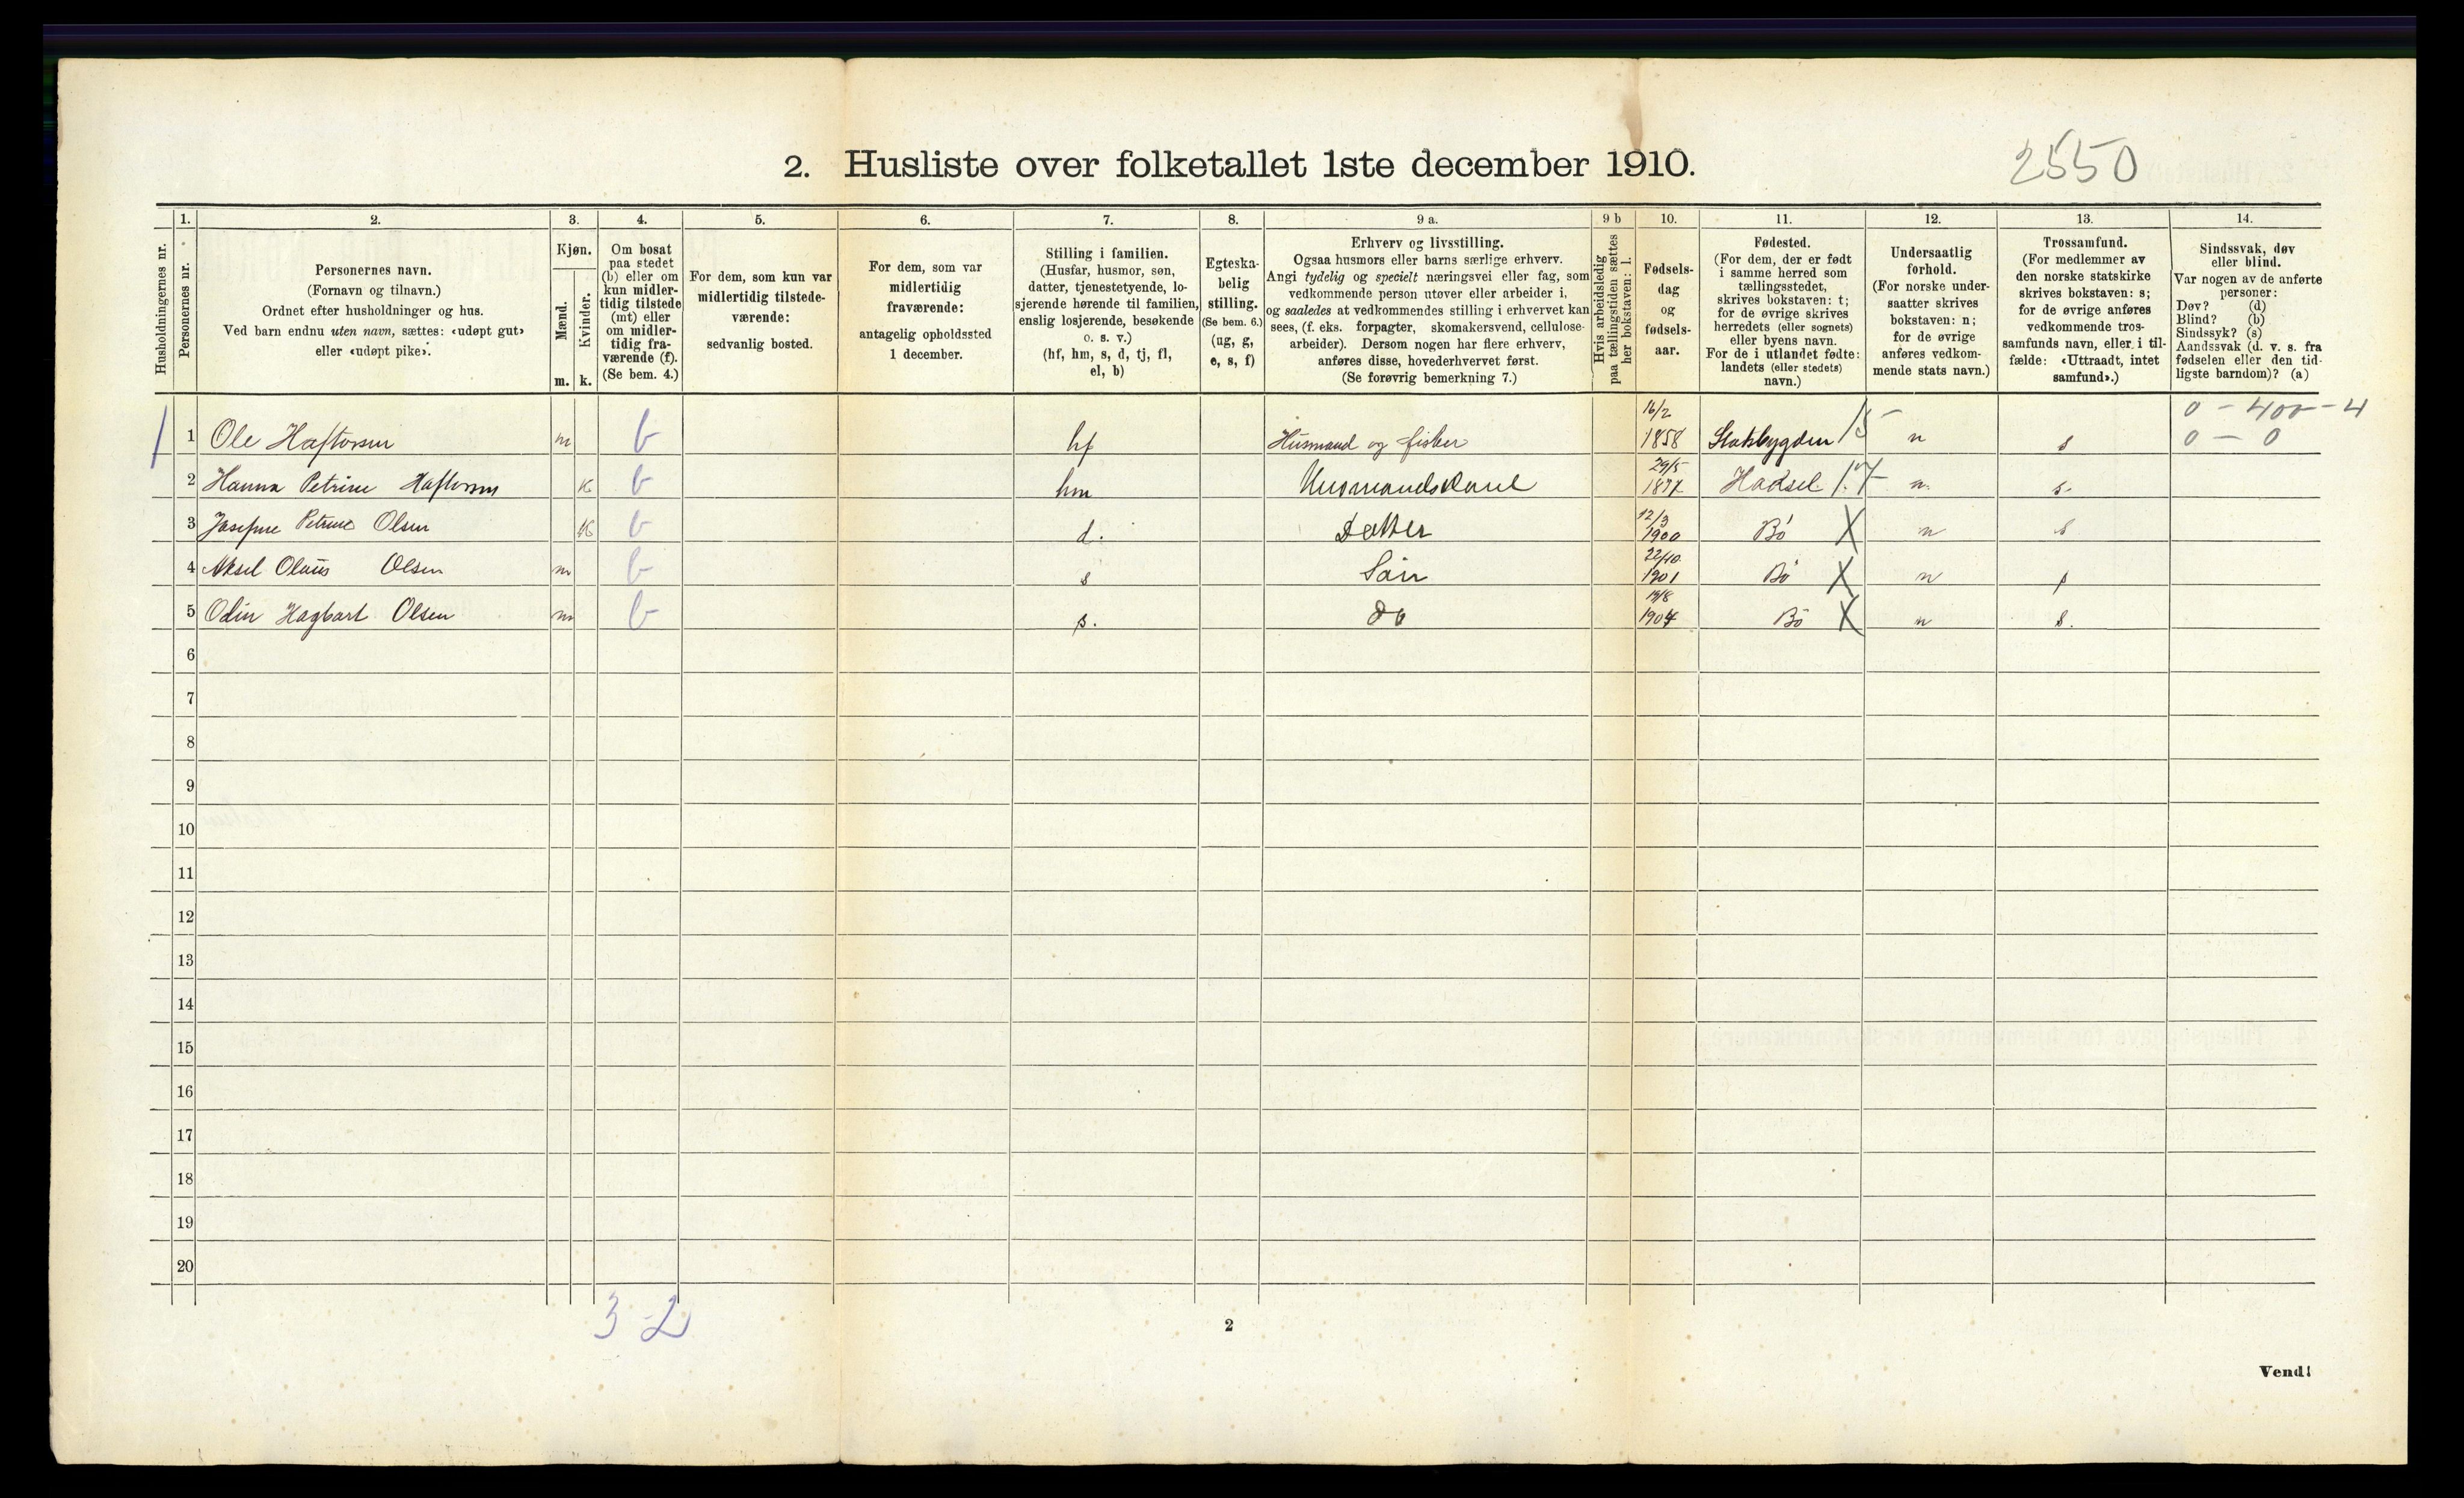 2. Husliste over folketallet 1ste december 1910.
2550
1. 2. 3. 4. 5. 6. 7. 8. 9 a. 9 b 10. 11. 12. 13. 14.
Husholdningernes nr.
Personernes nr.
Personernes navn.
(Fornavn og tilnavn.)
Ordnet efter husholdninger og hus.
Ved barn endnu uten navn, sættes: «udøpt gut»
eller «udøpt pike».
Kjøn.
Mænd.
Kvinder.
m. k.
Om bosat
paa stedet
(b) eller om
kun midler-
tidig tilstede
(mt) eller
om midler-
tidig fra-
værende (f).
(Se bem. 4.)
For dem, som kun var
midlertidig tilstede-
værende:
sedvanlig bosted.
For dem, som var
midlertidig
fraværende:
antagelig opholdssted
1 december.
Stilling i familien.
(Husfar, husmor, søn,
datter, tjenestetyende, lo-
sjerende hørende til familien,
enslig losjerende, besøkende
o. s. v.)
(hf, hm, s, d, tj, fl,
el, b)
Egteska-
belig
stilling.
(Se bem. 6.)
(ug, g,
e, s, f)
Erhverv og livsstilling.
Ogsaa husmors eller barns særlige erhverv.
Angi tydelig og specielt næringsvei eller fag, som
vedkommende person utøver eller arbeider i,
og saaledes at vedkommendes stilling i erhvervet kan
sees, (f. eks. forpagter, skomakersvend, cellulose-
arbeider). Dersom nogen har flere erhverv,
anføres disse, hovederhvervet først.
(Se forøvrig bemerkning 7.)
Hvis arbeidsledig
paa tællingstiden sættes
her bokstaven: l.
Fødsels-
dag
og
fødsels-
aar.
Fødested.
(For dem, der er født
i samme herred som
tællingsstedet,
skrives bokstaven: t;
for de øvrige skrives
herredets (eller sognets)
eller byens navn.
For de i utlandet fødte:
landets (eller stedets)
navn.)
Undersaatlig
forhold.
(For norske under-
saatter skrives
bokstaven: n;
for de øvrige
anføres vedkom-
mende stats navn.)
Trossamfund.
(For medlemmer av
den norske statskirke
skrives bokstaven: s;
for de øvrige anføres
vedkommende tros-
samfunds navn, eller i til-
fælde: «Uttraadt, intet
samfund».)
Sindssvak, døv
eller blind.
Var nogen av de anførte
personer:
Døv? (d)
Blind? (b)
Sindssyk? (s)
Aandssvak (d. v. s. fra
fødselen eller den tid-
ligste barndom)? (a)
16/2 0 - 400 - 4
1 1 Ole Haftorsen m b hf Husmand og fisker 1858 n s 0 - 0
29/5
2 Hanna Petrine Haftorsen k b hm Husmandskone Hadsel n. s.
12/3
3 Josefine Petrine Olsen k b d. Datter 1900 Bø X n s
22/10
4 Aksel Olaus Olsen m b s Søn 1901 Bø X n s
5 Odin Hagbart Olsen m b s. do 1904 Bø X n s.
6
7
8
9
10
11
12
13
14
15
16
17
18
19
20
3-2
2
Vend!